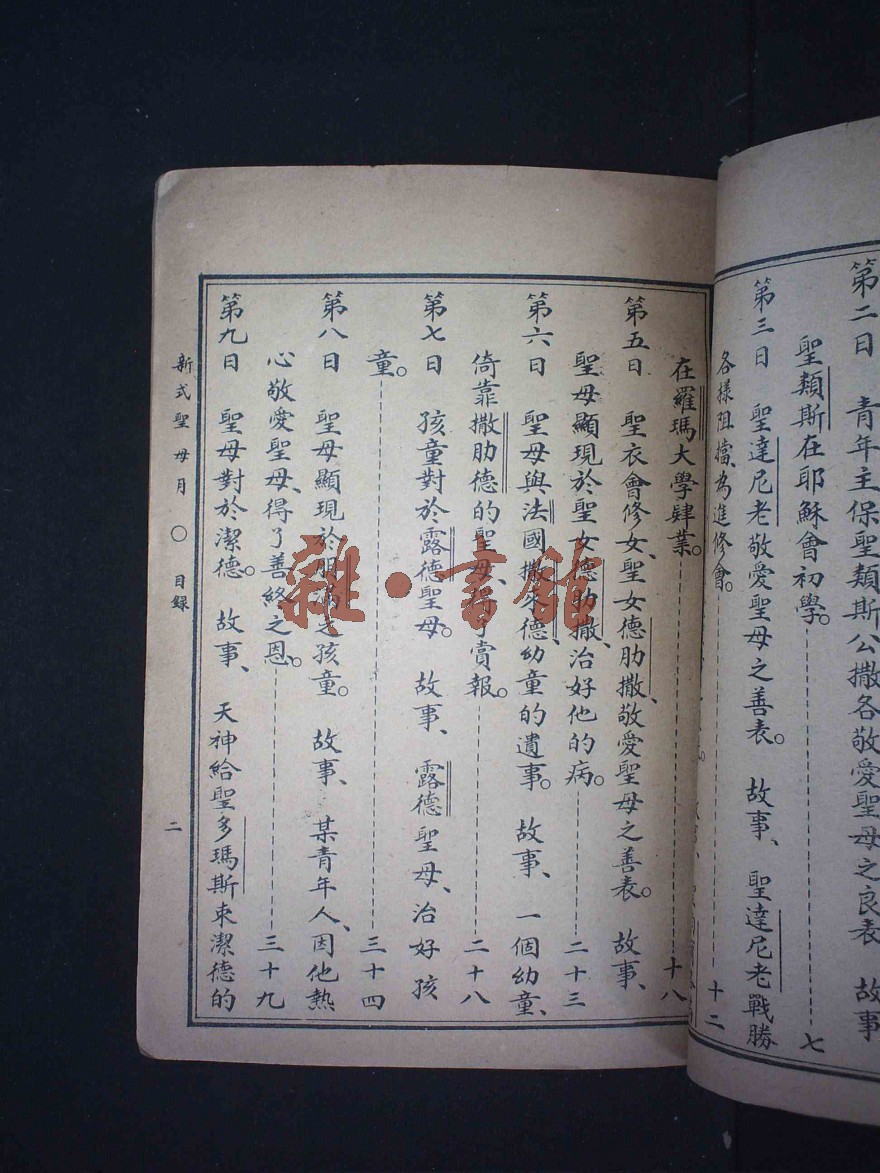 第二日 青年主保聖類斯公撒各敬愛聖母之良表 故事
聖類斯在耶穌會初學。 七
第三日 聖達尼老敬愛聖母之善表。 故事、 聖達尼老戰勝
各樣阻擋、為進修會。 十二
在羅瑪大學肄業。 十八
第五日 聖衣會修女、聖女德肋撒、敬愛聖母之善表。 故事、
聖母顯現於聖女德肋撒、治好他的病。 二十三
第六日 聖母與法國撒德幼童的遺事。 故事、 一個幼童、
倚靠撒肋德的聖母、得了賞報。 二十八
第七日 孩童對於露德聖母。 故事、 露德聖母、治好孩
童。 三十四
第八日 聖母顯現於之孩童。 故事、 某青年人、因他熱
心敬愛聖母、得了善終之恩。 三十九
第九日 聖母對於潔德。 故事、 天神給聖多瑪斯束潔德的
新式聖母月 〇 目錄 二
雜·書館